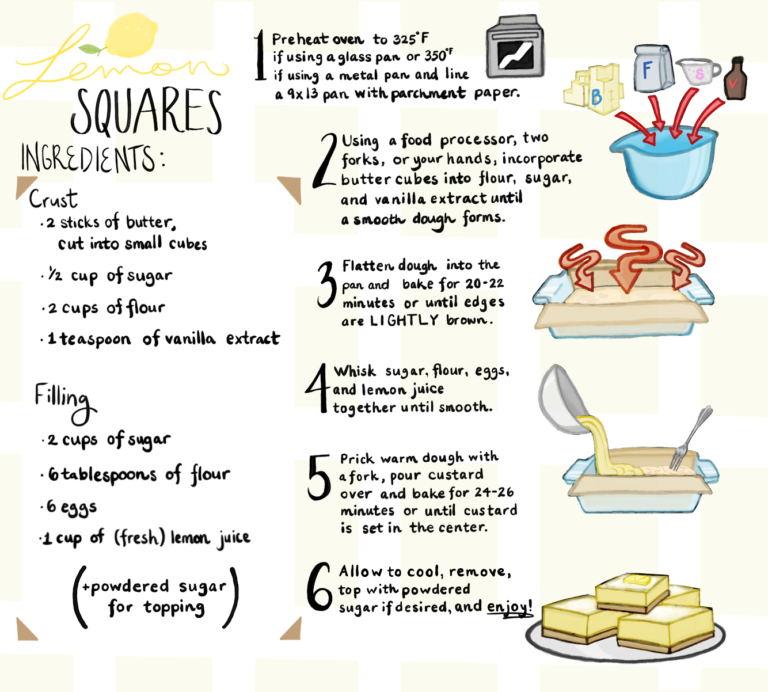 Lemon
SQUARES
INGREDIENTS:
Crust
·2 sticks of butter,
cut into small cubes
·½ cup of sugar
·2 cups of flour
·1 teaspoon of vanilla extract
Filling
·2 cups of sugar
·6 tablespoons of flour
·6 eggs
·1 cup of (fresh) lemon juice
(+powdered sugar
for topping)
1 Preheat oven to 325°F
if using a glass pan or 350°F
if using a metal pan and line
a 9x13 pan with parchment paper.
2 Using a food processor, two
forks, or your hands, incorporate
butter cubes into flour, sugar,
and vanilla extract until
a smooth dough forms.
3 Flatten dough into the
pan and bake for 20-22
minutes or until edges
are LIGHTLY brown.
4 Whisk sugar, flour, eggs,
and lemon juice
together until smooth.
5 Prick warm dough with
a fork, pour custard
over and bake for 24-26
minutes or until custard
is set in the center.
6 Allow to cool, remove,
top with powdered
sugar if desired, and enjoy!
B F S V